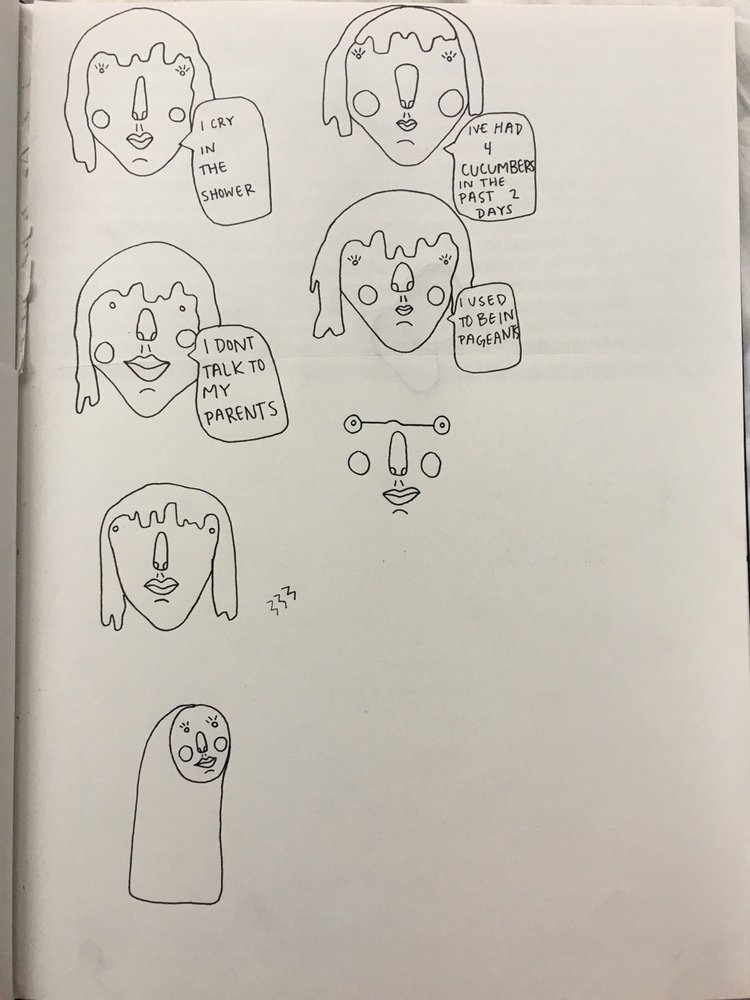 I CRY
IN
THE
SHOWER
IVE HAD
4
CUCUMBERS
IN THE
PAST 2
DAYS
I DONT
TALK TO
MY
PARENTS
I USED
TO BE IN
PAGEANTS